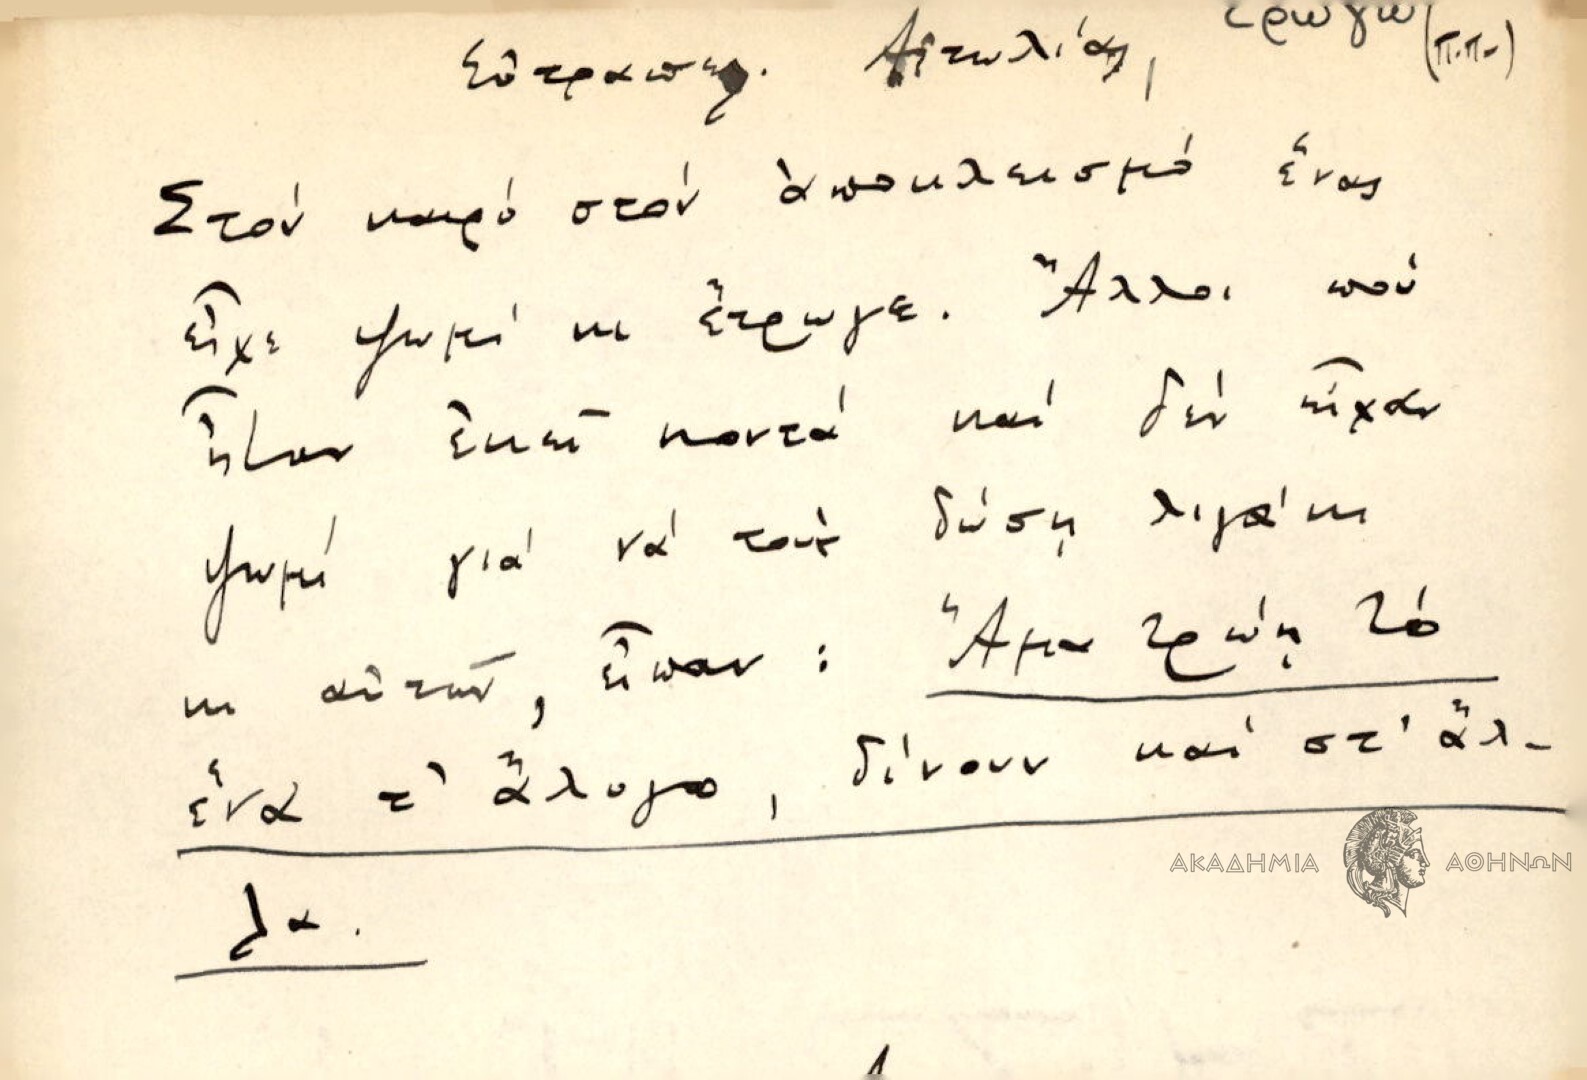 τρώγω (π.π.)
Εὐτραπελ. Αἰτωλίας,
Στόν καιρό στόν ἀποκλεισμό ἕνας
εἶχε ψωμί κι ἔτρωγε. Ἄλλοι πού
ἦταν ἐκεῖ κοντά καί δέν εἶχαν
ψωμί γιά νά τούς δώσῃ λιγάκι
κι αὐτῶν, εἶπαν : Ἅμα τρώῃ τό
ἕνα τ' ἄλογο, δίνουν καί στ' ἄλ-
λα.
ΑΚΑΔΗΜΙΑ ΑΘΗΝΩΝ